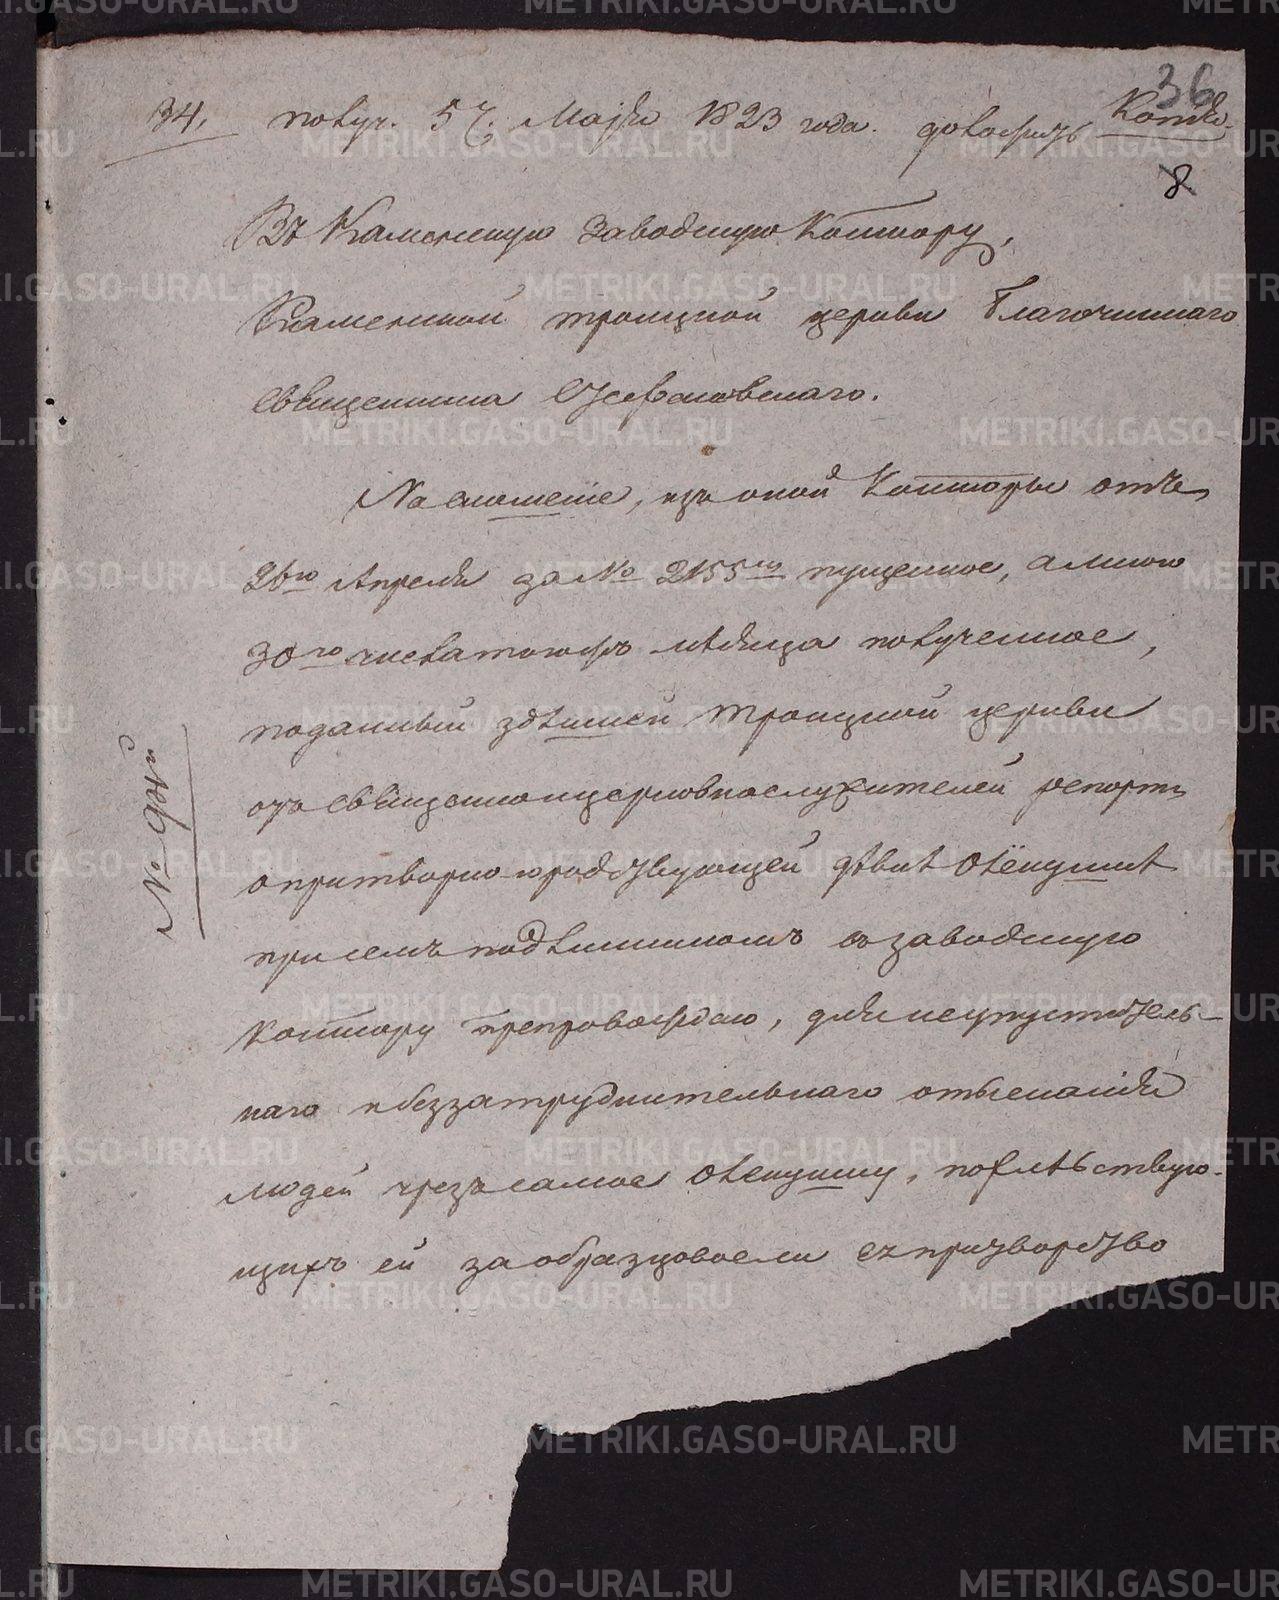 36
34. получ. 5 г. Маія 1823 года. доложить
8
Въ Каменскую Заводскую Контору,
Каменской троицкой церкви Благочиннаго
священника
На сношеніе, изъ оной Конторы отъ
26го Апреля за № 2155мъ пущенное, а мною
30го числа тогожъ мѣсяца полученное,
поданный здѣшней троицкой церкви
отъ священноицерковнослужителей репортъ
о притворно-юродствующей дѣвкѣ Олёнушкѣ
при семъ подлинникомъ въ заводскую
контору препровождаю, для неупуститель-
наго и беззатруднительнаго отысканія
людей чрезъ самое Оленушку, послѣдствую-
щихъ ей за образцовое ея притворство
METRIKI.GASO-URAL.RU